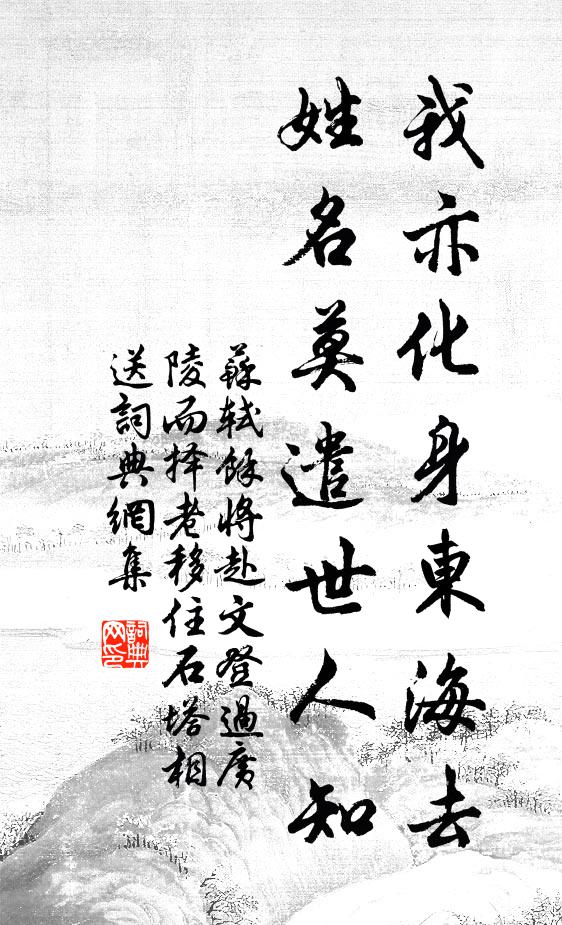 我亦化身東海去
姓名莫遣世人知
蘇軾餘將赴文登過廣
陵而择老移住石塔相
送詞典網集
詞典
网印